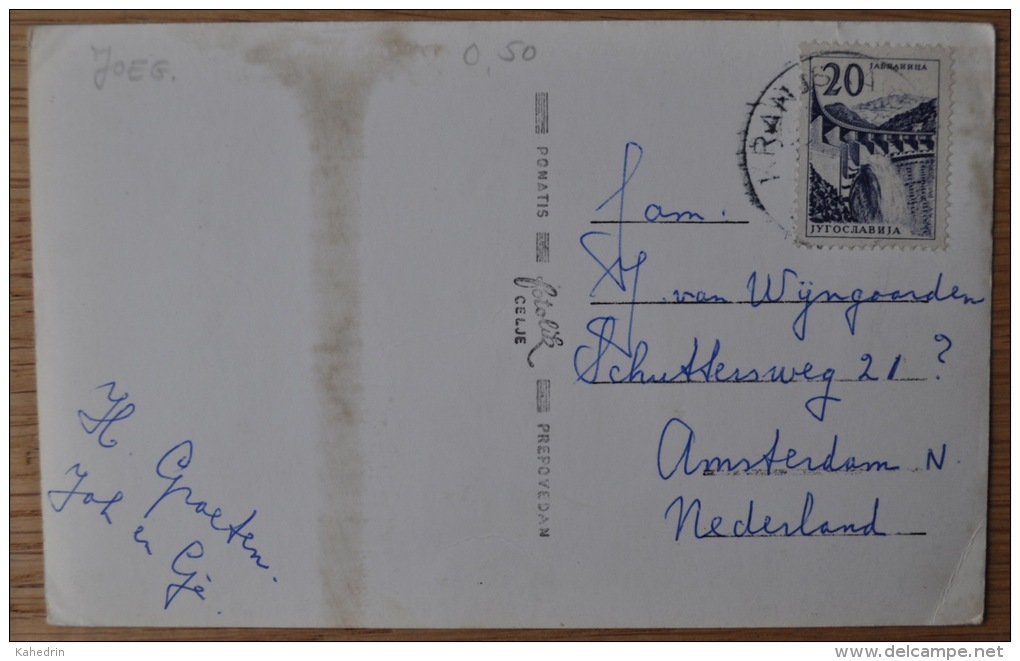 JOEG.
0,50
20
ЈАБЛАНИЦА
ЈУГОСЛАВИЈА
KRANJS
PONATIS
fotolik
CELJE
PREPOVEDAN
Fam.
H. van Wijngaarden
Schuttersweg 21 ?
Amsterdam N.
Nederland
H. Groeten.
Joh en Gé.
Kahedrin
www.delcampe.net